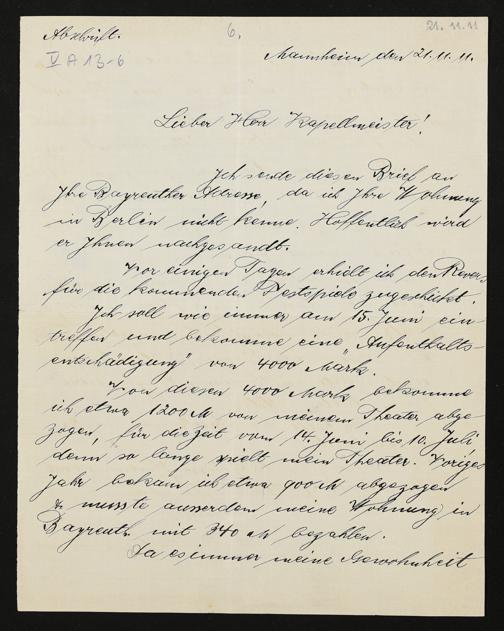 Abschrift. 6. 21.11.11
V A 13-6
Mannheim den 21.11.11.
Lieber Herr Kapellmeister!
Ich sende diesen Brief an
Ihre Bayreuther Adresse, da ich Ihre Wohnung
in Berlin nicht kenne. Hoffentlich wird
er Ihnen nachgesandt.
Vor einigen Tagen erhielt ich den Revers
für die kommenden Festspiele zugeschickt.
Ich soll wie immer am 15. Juni ein-
treffen und bekomme eine „Aufenthalts-
entschädigung" von 4000 Mark.
Von diesen 4000 Mark bekomme
ich etwa 1200 M von meinem Theater abge-
zogen, für die Zeit vom 14. Juni bis 10. Juli
denn so lange spielt mein Theater. Voriges
Jahr bekam ich etwa 900 M abgezogen
& musste ausserdem meine Wohnung in
Bayreuth mit 340 M bezahlen.
Da es immer meine Gewohnheit